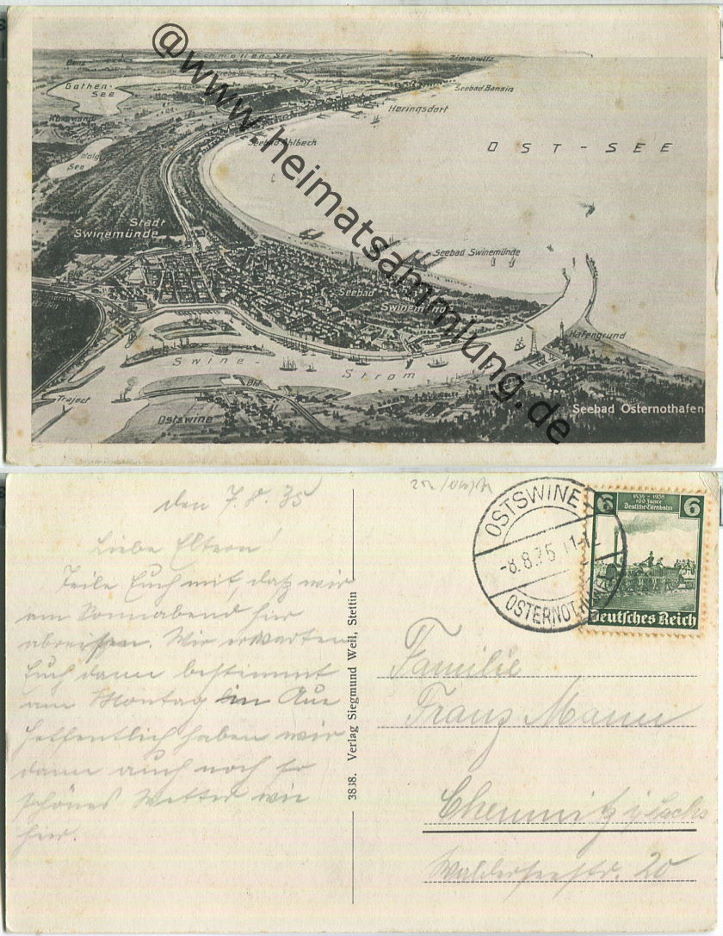 Benz
Schmollen-See
Zinnowitz
Gothen-
See
Seebad Bansin
Heringsdorf
Seebad Ahlbeck
OST-SEE
See
Stadt
Swinemünde
Seebad Swinemünde
Seebad
Swinemünde
Hafengrund
Swine Strom
Bhf
Traject
Ostswine
Seebad Osternothafen
@www.heimatsammlung.de
den 7.8.35
Liebe Eltern!
Teile Euch mit, daß wir
am Sonnabend hier
abreisen. Wir erwarten
Euch dann bestimmt
am Montag in Aue
Hoffentlich haben wir
dann auch noch so
schönes Wetter wie
hier.
3838. Verlag Siegmund Weil, Stettin
OSTSWINE
-8.8.35
OSTERNOTHAFEN
6 1835-1935 6
100 Jahre
Deutsche Eisenbahn
Deutsches Reich
Familie
Franz Mann
Chemnitz i. Sachs
Walderseestr. 20